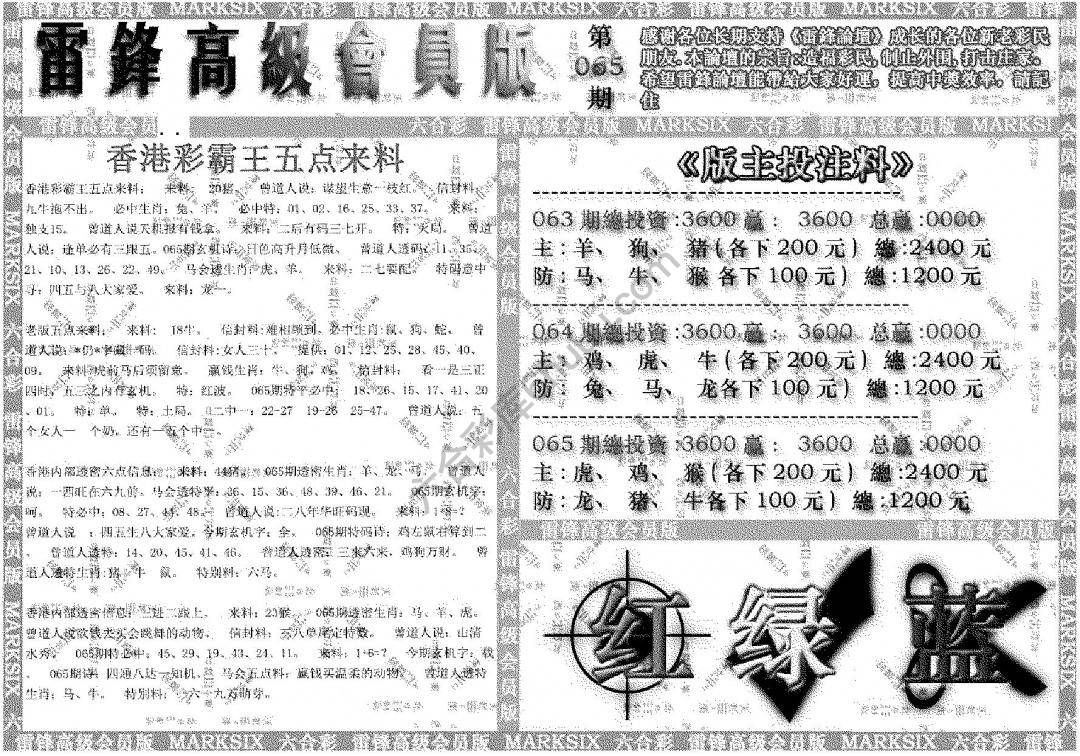 雷锋高级会员版 MARKSIX 六合彩 雷锋高级会员版 MARKSIX 六合彩 雷锋高级会员版 MARKSIX
雷鋒高級會員版
第
065
期
感谢各位长期支持《雷鋒論壇》成长的各位新老彩民
朋友.本論壇的宗旨:造福彩民,制止外围,打击庄家.
希望雷鋒論壇能帶給大家好運，提高中獎效率，請記
住
雷锋高级会员版 六合彩 雷锋高级会员版 MARKSIX 六合彩 雷锋高级会员版 MARKSIX
香港彩霸王五点来料
香港彩霸王五点来料： 来料： 20猪. 曾道人说：谋望生意一枝红。 信封料：
九牛拖不出。 必中生肖：兔、羊。 必中特：01、02、16、25、33、37。 来料：
独支15。 曾道人说天机报有钱拿。 来料：二后有码三七开。 特：天局。 曾道
人说：逢单必有三跟五。065期玄机诗：日色高升月低微。 曾道人透码：11、35、
21、10、13、26、22、49。 马会透生肖：虎、羊。 来料：二七要配。 特码意中
寻：四五与八大家爱。 来料：龙一。
老版五点来料： 来料: 18牛。 信封料:难相顾到。必中生肖:鼠、狗、蛇。 曾
信封料:女人三十。 提供：01、12、25、28、45、40、
09。 来料:虎前马后须留意。 赢钱生肖：牛、狗、鸡。 信封料： 看一是三正
四时，五三之内有玄机。 特：红波。 065期特平必中： 18、26、15、17、41、20
、01。 特：单。 特：土局。 二中一：22-27 19-26 25-47。 曾道人说：五
个女人一 个奶。还有一五个中一。
香港内部透密六点信息： 来料：44猪。 065期透密生肖：羊、龙、马。 曾道人
说：一四旺在六九前。马会透特平：36、15、36、48、39、46、21。 065期玄机字：
呵。 特必中：08、27、44、48。 曾道人说：二八年华旺码现。 来料：1+8=?
曾道人说 ：四五生八大家爱。今期玄机字：全。 065期特码诗：鸡左鼠右算到二
。 曾道人透特：14、20、45、41、46。 曾道人透密：三来六来、鸡狗万财。 曾
道人透特生肖：猪、牛 鼠。 特别料：六马。
香港内部透密信息：三进二跟上。 来料：23猴。 065期透密生肖：马、羊、虎。
曾道人说欲钱去买会跳舞的动物。 信封料：三八单尾定特数。 曾道人说：山清
水秀。 065期特必中：45、29、19、43、24、11。 来料：1+6=? 今期玄机字：载
。 065期诗：四通八达一知机。 马会五点料：赢钱买温柔的动物。 曾道人透特
生肖：马、牛。 特别料： 六一九万萌芽。
《版主投注料》
063 期總投资:3600 赢: 3600 总赢:0000
主:羊、 狗、 猪(各下 200 元) 總:2400 元
防:马、 牛、 猴 各下 100 元) 總:1200 元
064 期總投资:3600 赢: 3600 总赢:0000
主:鸡、 虎、 牛(各下 200 元) 總:2400 元
防:兔、 马、 龙各下 100 元) 總:1200 元
065 期總投资:3600 赢: 3600 总赢:0000
主:虎、 鸡、 猴(各下 200 元) 總:2400 元
防:龙、 猪、 牛各下 100 元) 總:1200 元
雷锋高级会员版 雷锋高级会员版
红 绿 蓝
雷锋高级会员版 MARKSIX 六合彩 雷锋高级会员版 MARKSIX 六合彩 雷锋高级会员版 MARKSIX